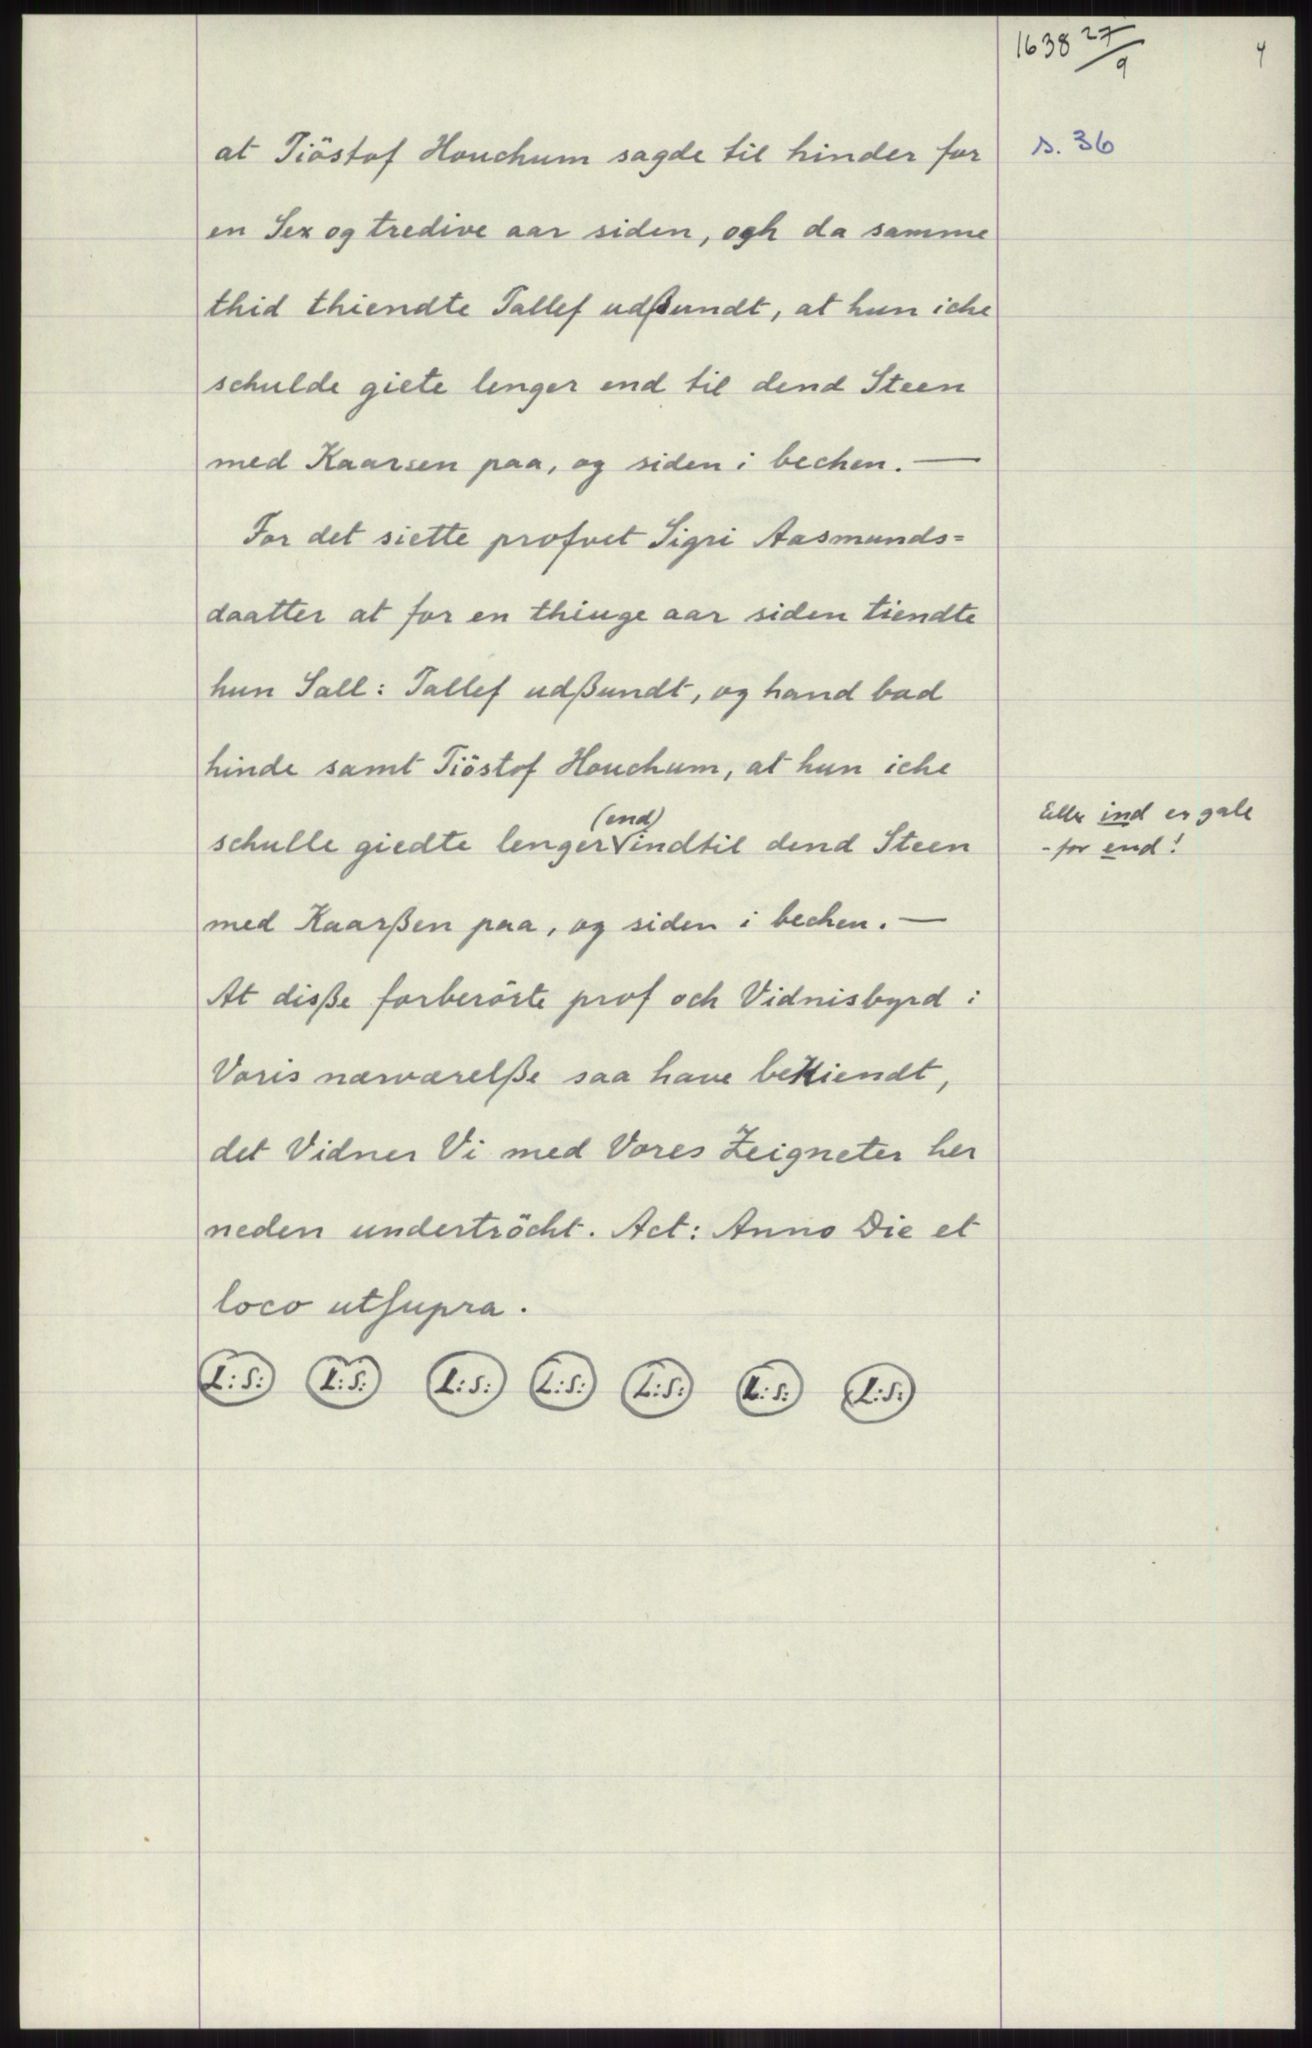 1638 27/9
4
s. 36
at Tiöstof Houchum sagde til hinder for
en Sex og tredive aar siden, ogh da samme
thid thiendte Tallef udßundt, at hun iche
schulde giete lenger end til dend Steen
med Kaarsen paa, og siden i bechen. —
For det siette profvet Sigri Aasmunds=
daatter at for en thiuge aar siden tiendte
hun Sall: Tallef udßundt, og hand bad
hinde samt Tiöstof Houchum, at hun iche
(end)
schulle giedte lenger V indtil dend Steen
Eller ind er gale
- for end!
med Kaarßen paa, og siden i bechen. —
At disße forberörte prof och Vidnisbyrd i
Voris nærværelße saa have bekiendt,
det Vidner Vi med Vores Zeigneter her
neden undertröcht. Act: Anno Die et
loco utsupra.
L:S: L:S: L:S: L:S: L:S: L:S: L:S: